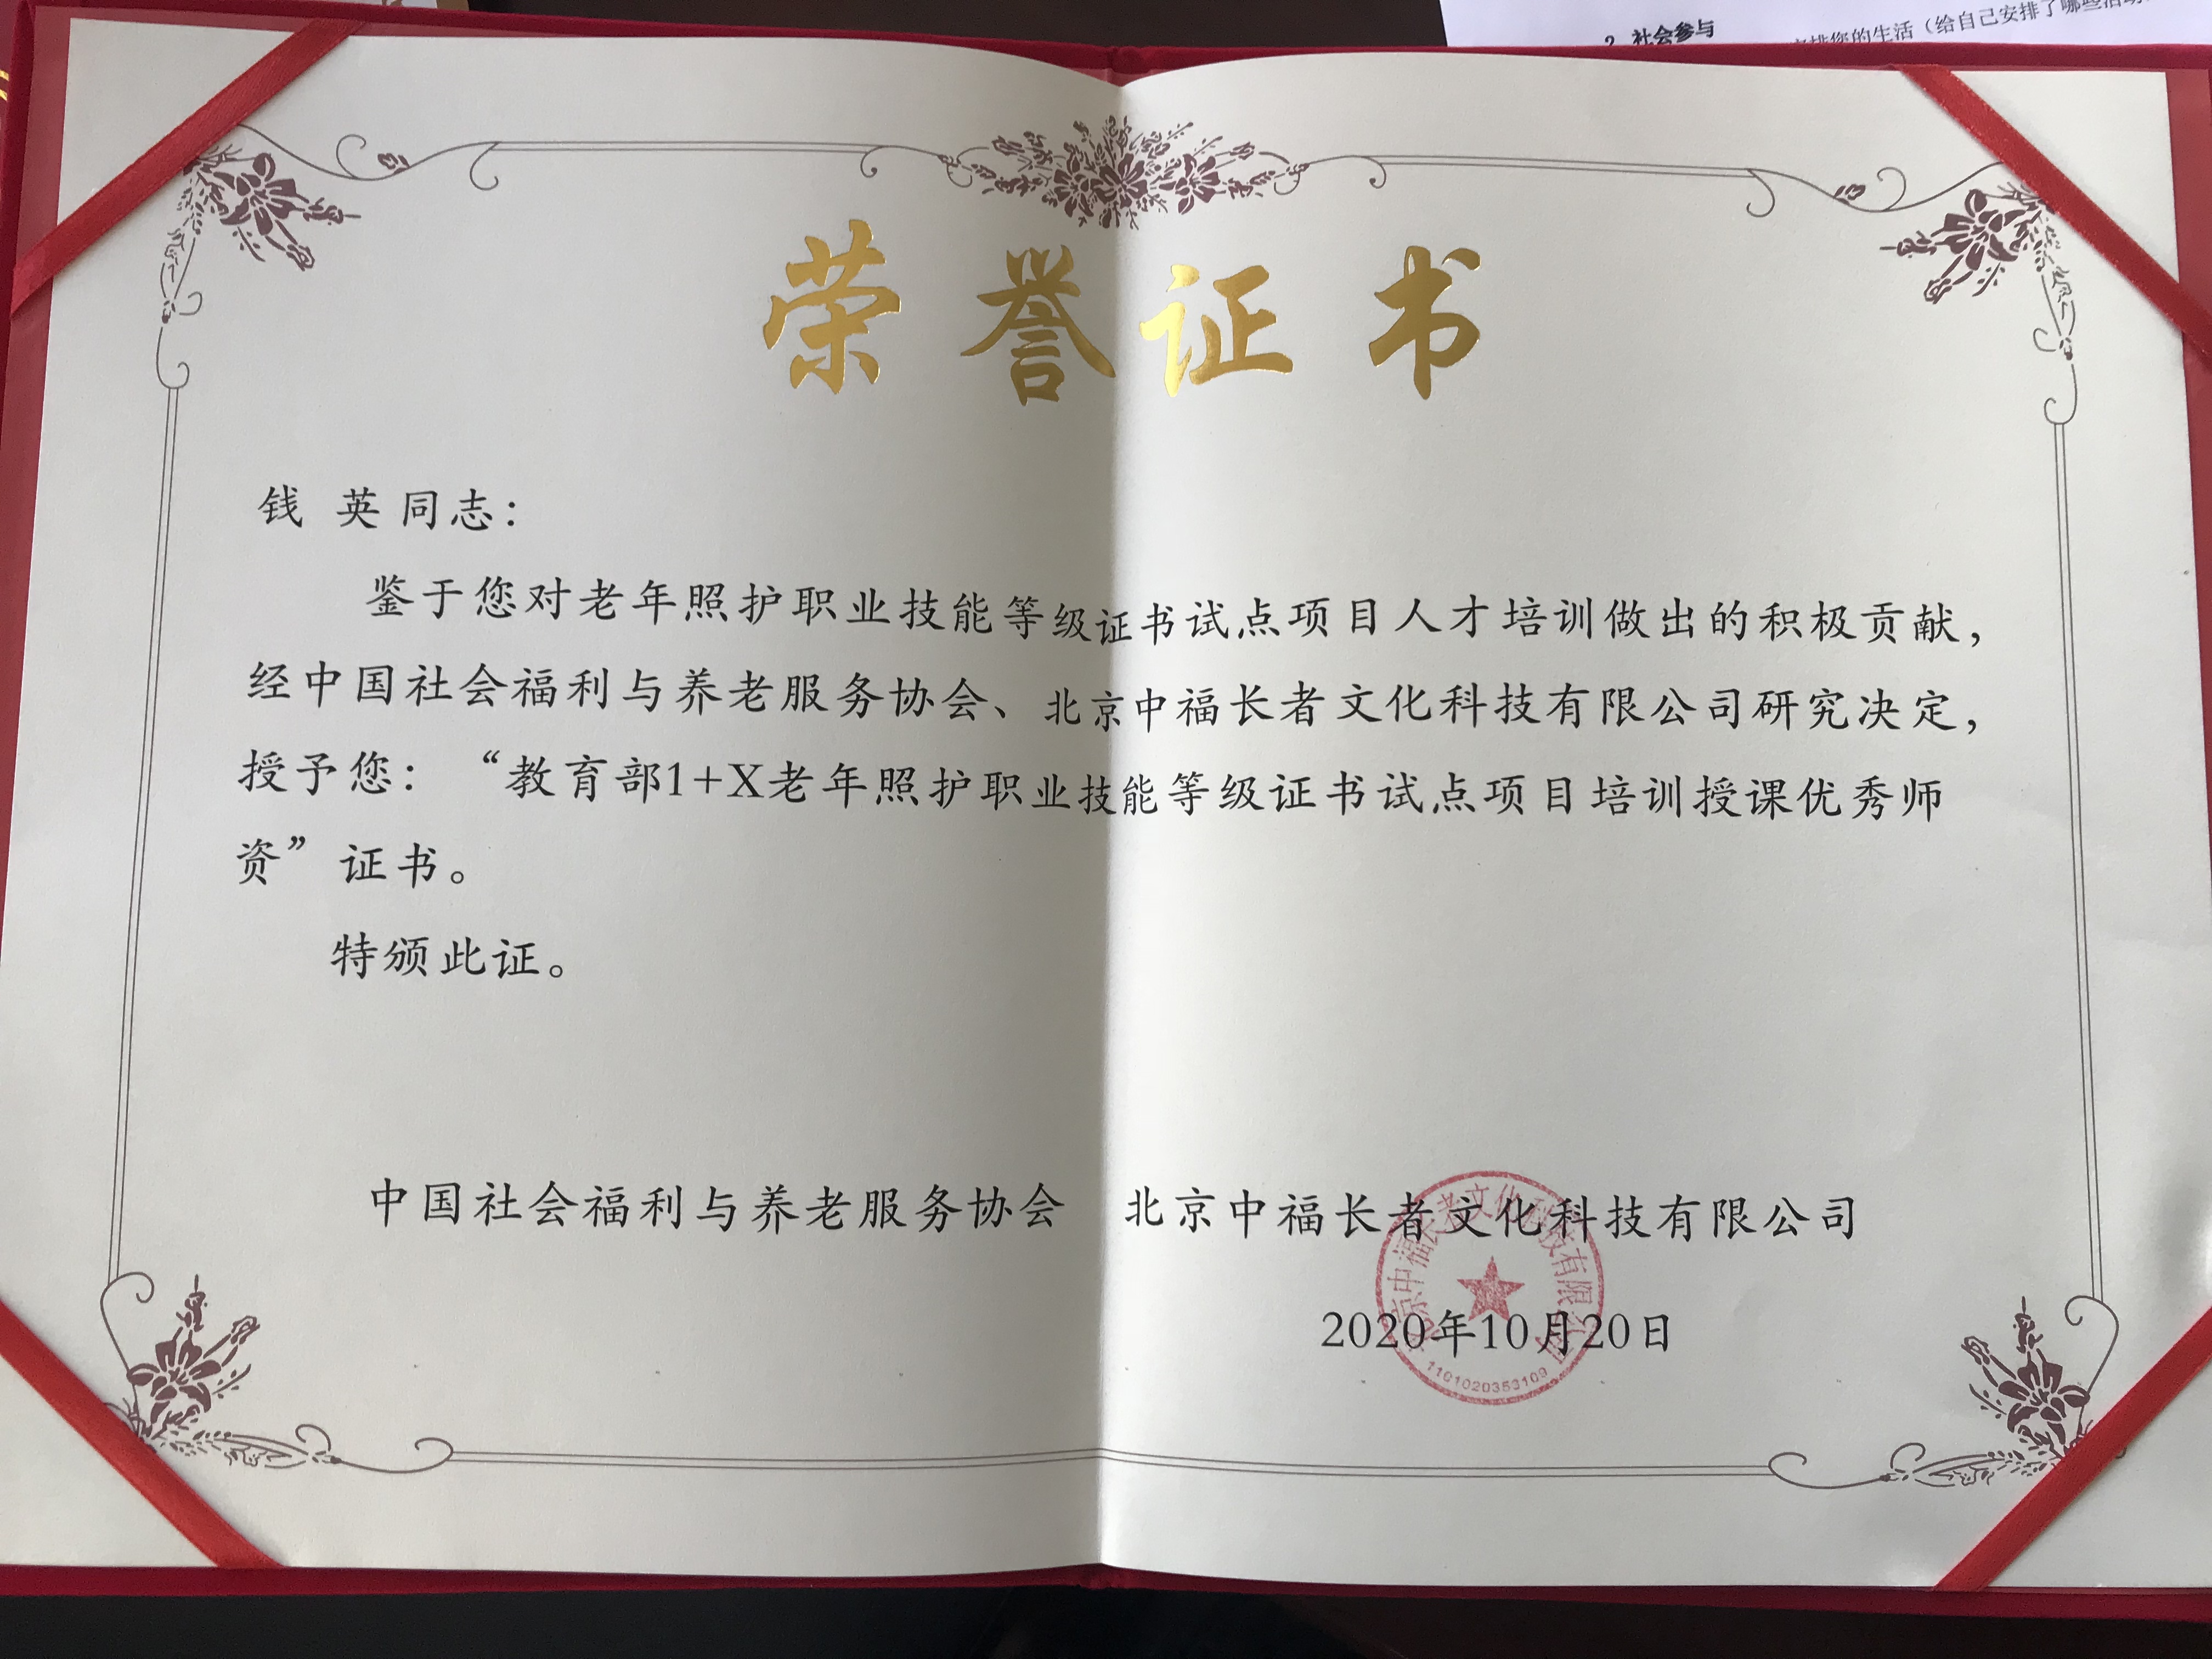 2、社会参与
排您的生活（给自己安排了哪些活动
荣誉证书
钱 英同志：
鉴于您对老年照护职业技能等级证书试点项目人才培训做出的积极贡献，
经中国社会福利与养老服务协会、北京中福长者文化科技有限公司研究决定，
授予您：“教育部1+X老年照护职业技能等级证书试点项目培训授课优秀师
资”证书。
特颁此证。
中国社会福利与养老服务协会 北京中福长者文化科技有限公司
2020年10月20日
北京中福长者文化科技有限公司
1101020353109